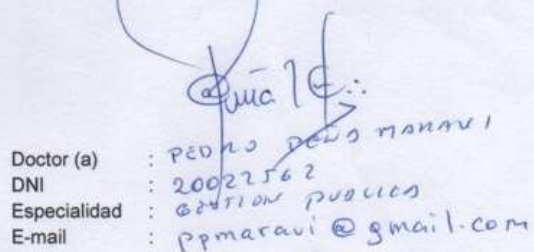 Doctor (a) : PEDRO PEÑA MARAVI
DNI : 20022562
Especialidad : GESTION PUBLICA
E-mail : ppmaravi@gmail.com